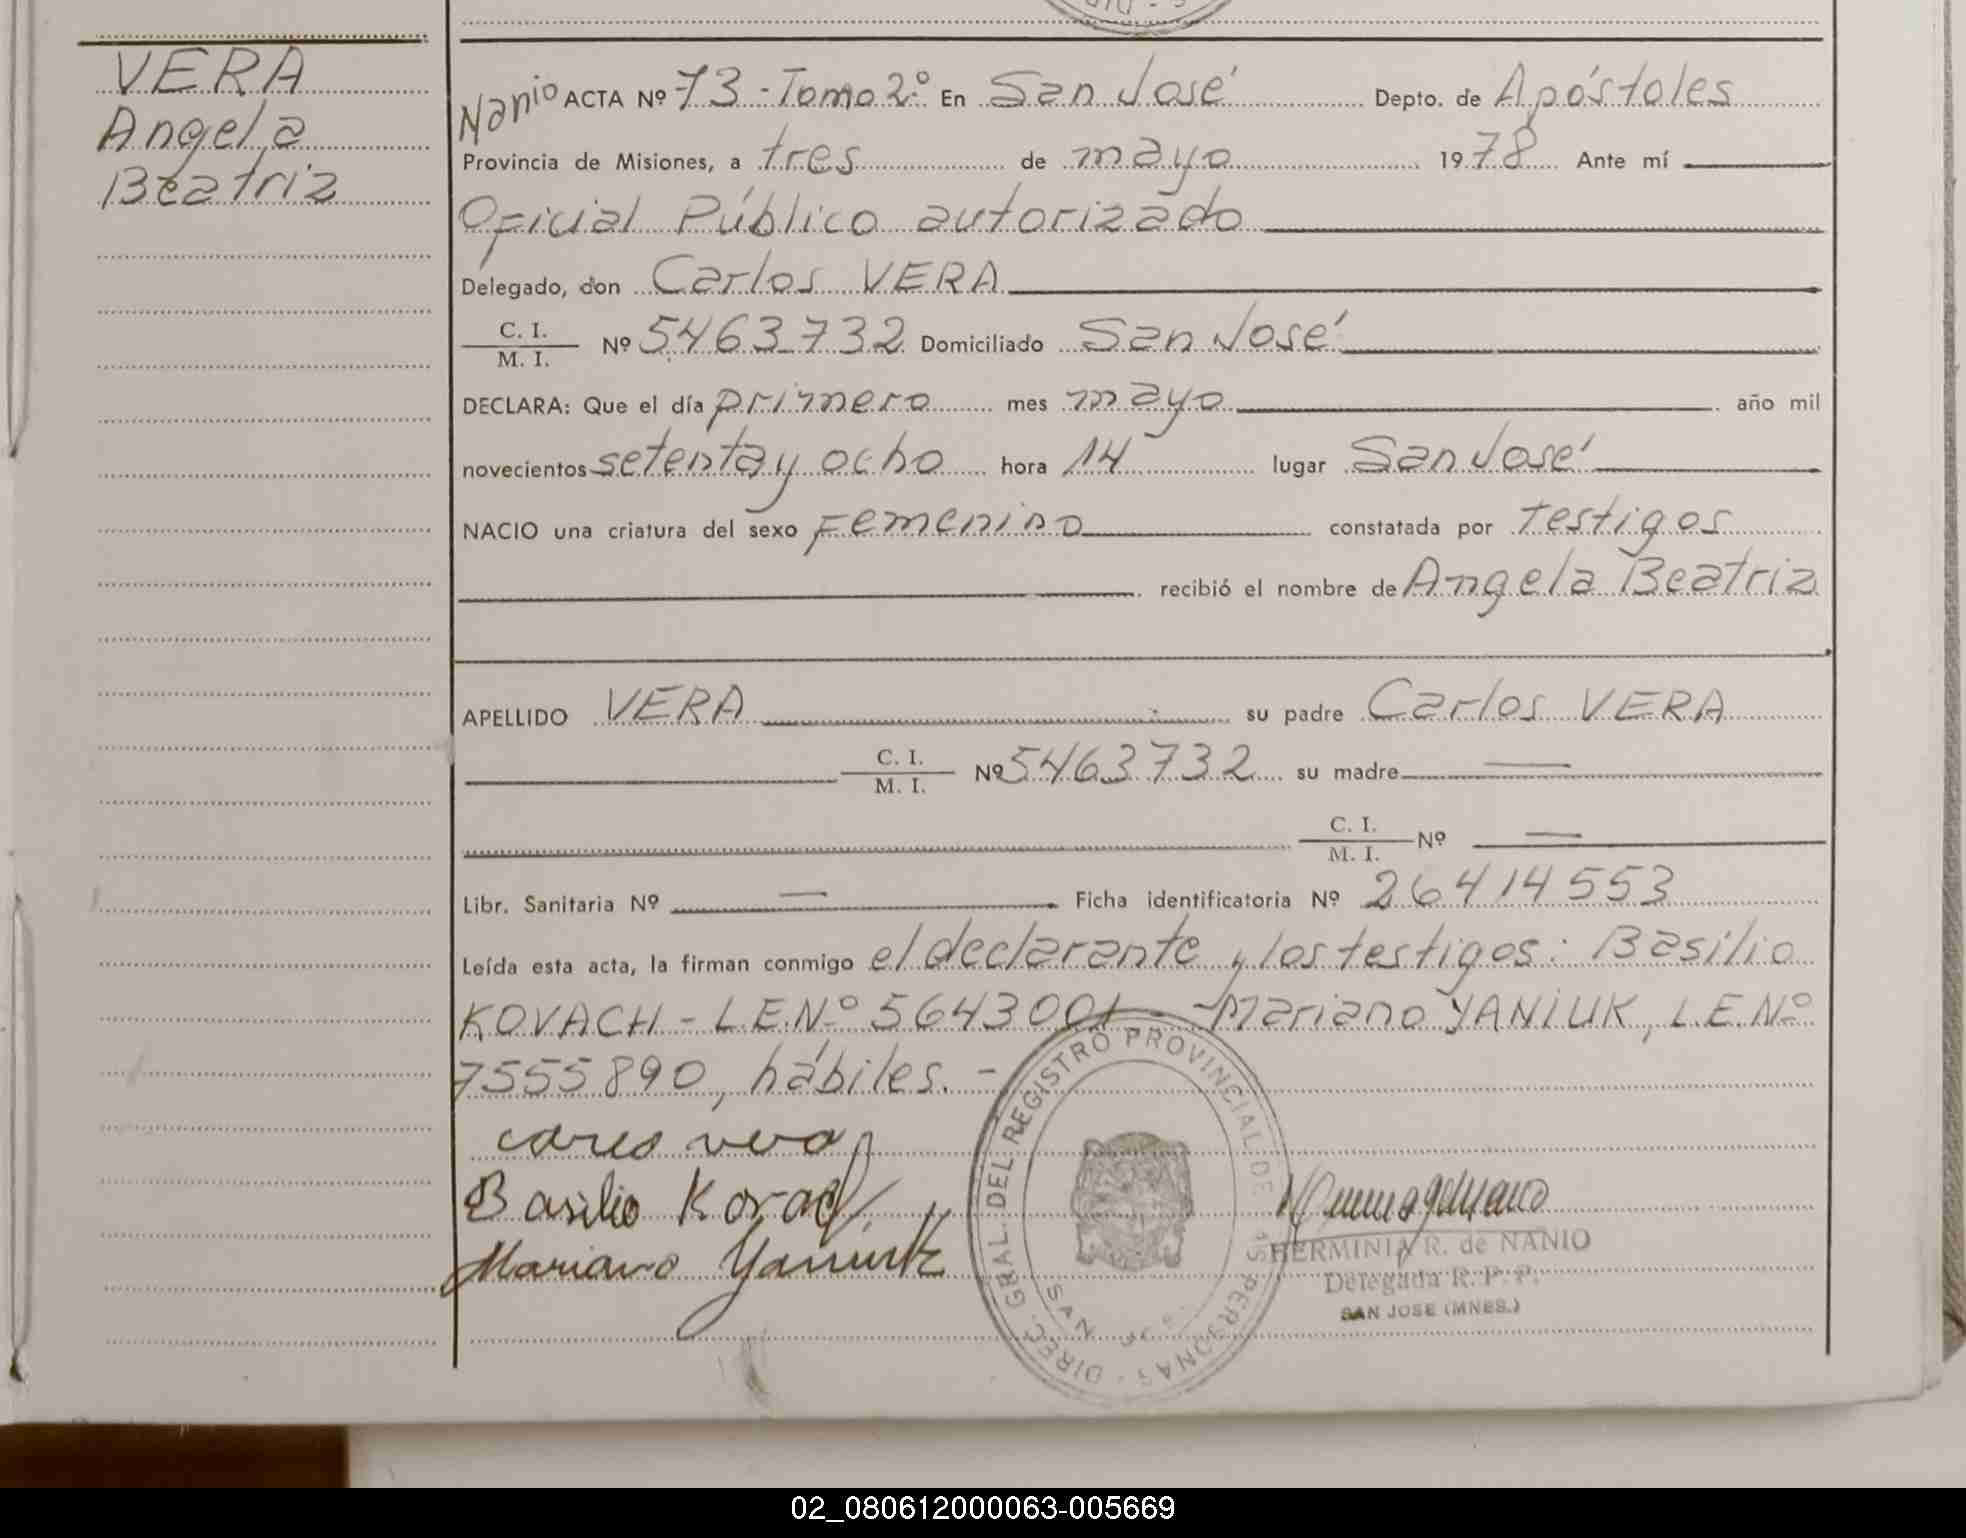 VERA
Angela
Beatriz
Nanio ACTA Nº 73 - Tomo 2º En San José Depto. de Apóstoles
Provincia de Misiones, a tres de mayo 1978 Ante mí
Oficial Público autorizado
Delegado, don Carlos VERA
C. I.
M. I. Nº 5463732 Domiciliado San José
DECLARA: Que el día primero mes mayo año mil
novecientos setenta y ocho hora 14 lugar San José
NACIO una criatura del sexo Femenino constatada por testigos
recibió el nombre de Angela Beatriz
APELLIDO VERA su padre Carlos VERA
C. I.
M. I. Nº 5463732 su madre —
C. I.
M. I. Nº —
Libr. Sanitaria Nº — Ficha identificatoria Nº 26414553
Leída esta acta, la firman conmigo el declarante y los testigos: Basilio
KOVACH - L.E.Nº 5643001 - - Mariano YANIUK, L.E.Nº
7555890, hábiles. -
carlos vera
Basilio Kovach
Mariano Yaniuk
DIREC. GRAL. DEL REGISTRO PROVINCIAL DE LAS PERSONAS
SAN JOSE
HERMINIA R. de NANIO
Delegada R. P. P.
SAN JOSE (MNES.)
02_080612000063-005669